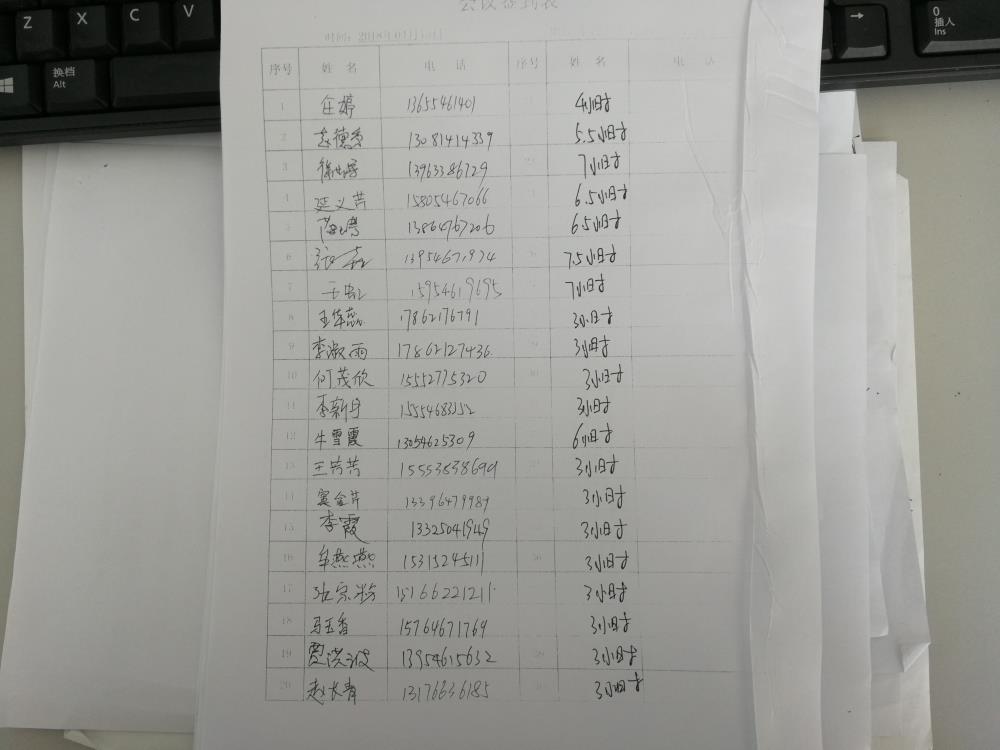 Z X C V
换档
Alt
→
0
插入
Ins
会议签到表
时间：2018
序号 姓 名 电 话 序号 姓 名 电 话
1 任婷 13655461401 4小时
2 13081414339 5.5小时
3 13963386729 7小时
4 延义芹 15805467066 6.5小时
5 13864767206 6.5小时
6 13954671974 7.5小时
7 15954619695 7小时
8 王华蕊 17862176791 3小时
9 李淑雨 17862127436 3小时
10 何茂欣 15552775320 3小时
11 李新月 15554683352 3小时
12 牛雪霞 13054625309 6小时
13 王芳芳 15553838699 3小时
14 窦金芹 13396479989 3小时
15 李霞 13325041949 3小时
16 牟燕燕 15315245111 3小时
17 15166221211 3小时
18 马玉香 15764671769 3小时
19 贾洪波 13954615632 3小时
20 赵长青 13176636185 3小时